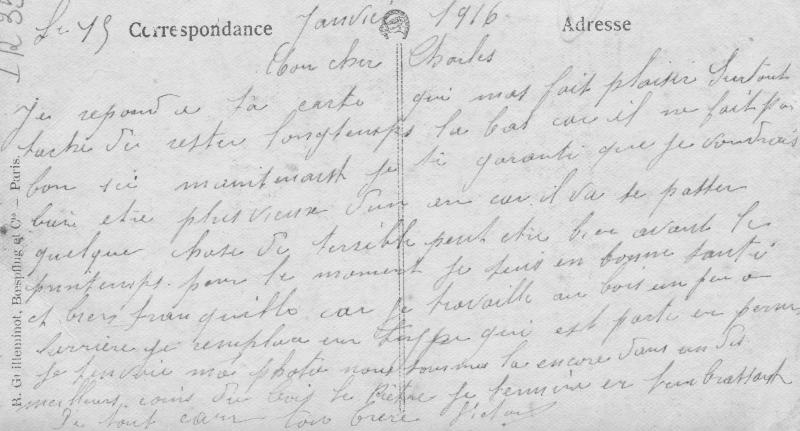 Le 15 Janvier 1916
Correspondance
Adresse
Mon cher Charles
Je repond a ta carte qui mas fait plaisir Surtout
tache de rester longtemps la bas car il ne fait pas
bon ici maintenant je te garanti que je voudrais
bien etre plus vieux d'un an car il va se passer
quelque chose de terrible peut etre bien avant le
printemps. pour le moment je suis en bonne santé
et bien tranquille car je travaille au bois un peu a
larriere je remplace un qui est parti en perm
je tenvoie ma photo nous sommes la encore dans un des
meilleurs coins du bois le Prêtre je termine en tembrassant
De tout cœur ton frere Victor
R. Guilleminot, Bœspflug et Cie — Paris.